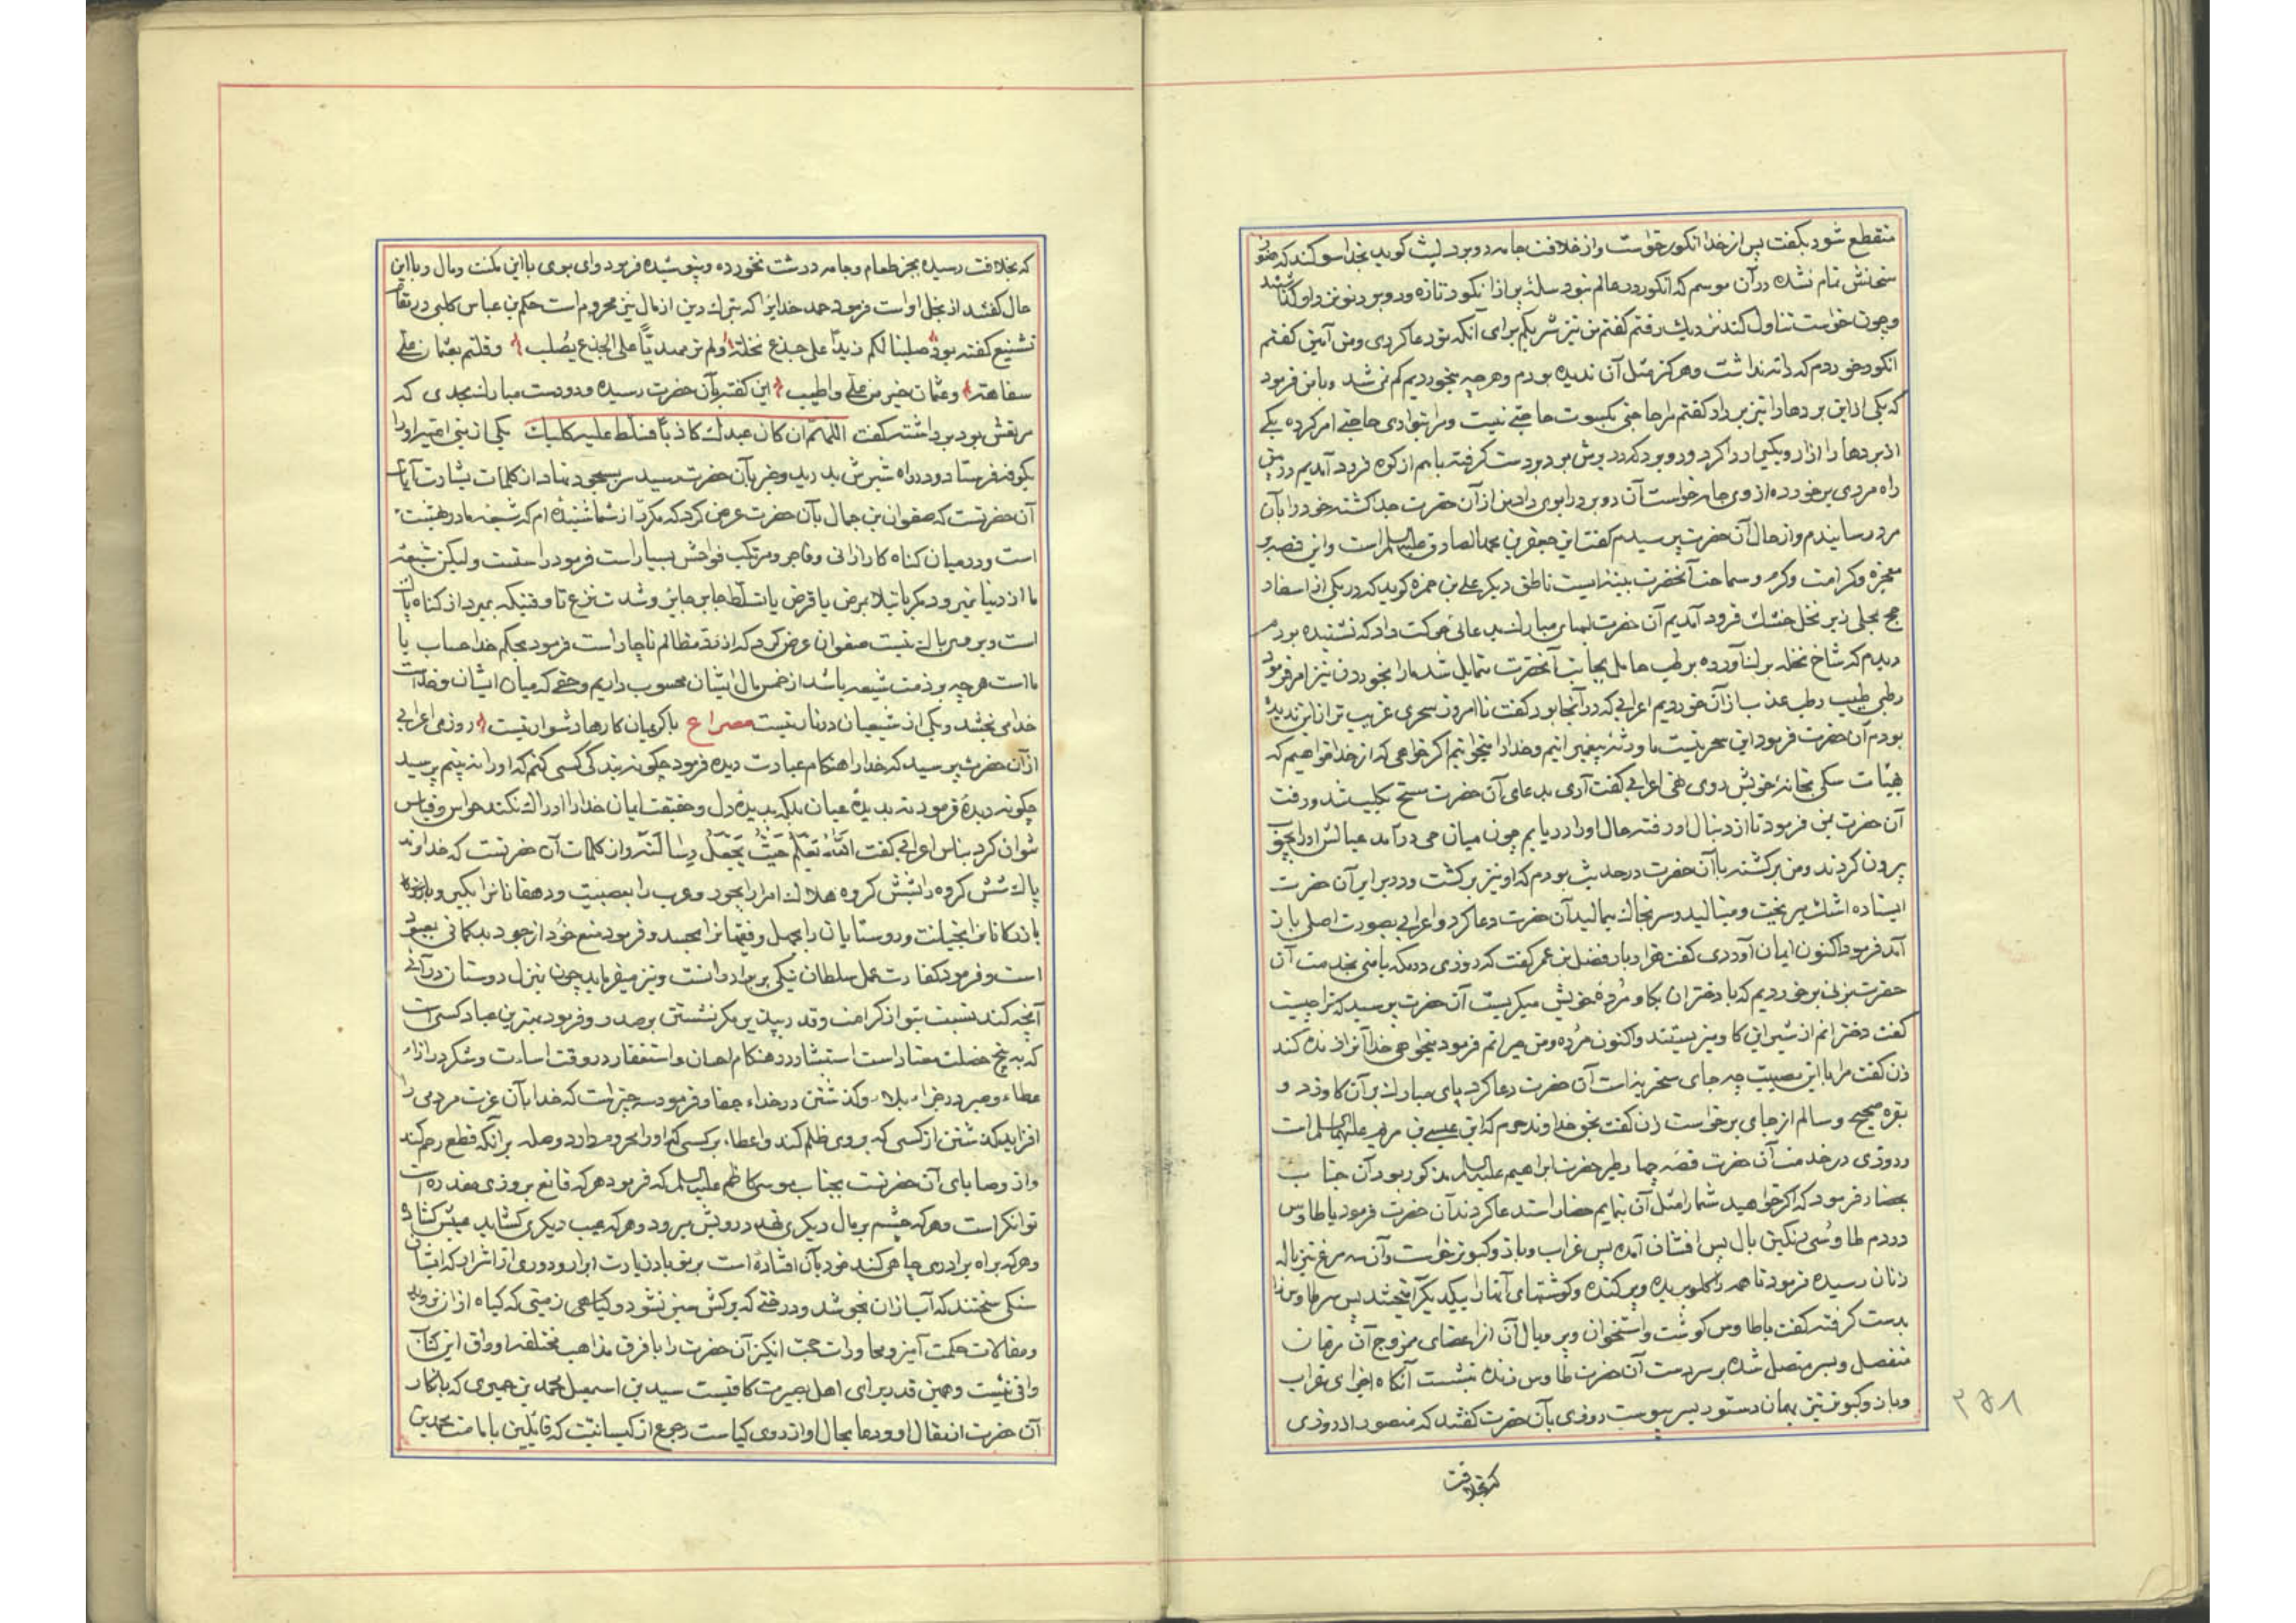 منقطع شود بگفت پس از خدا انگور خواست و از خلافت جامه دو برد لیث گوید بخدا سوگند که هنوز
سخنش تمام نشده در آن موسم که انگور در عالم نبود سلهٔ پر از انگور تازه و دو برد نو نزد او گذاشتند
و چون خواست تناول کند نزدیک رفتم گفتم من نیز شریکم برای آنکه تو دعا کردی و من آمین گفتم
انگور خوردم که دانه نداشت و هرگز مثل آن ندیده بودم و هر چه بخوردیم کم نمی شد و با من فرمود
که یکی از این بردها را نیز بردار گفتم مرا حاجتی بکسوت حاجتی نیست و مرا بتواری حاجتی امر کرده یکی
از بردها را ازار و یکی را ردا کرد و دو برد که در برش بود بر دست گرفته باهم از کوه فرود آمدیم در بین
راه مردی برخورده از وی جامه خواست آن دو برد را بوی داد من از آن حضرت جدا گشته خود را بآن
مرد رسانیدم و از حال آن حضرت پرسیدم گفت این جعفر بن محمد الصادق علیه السلم است و این قصه بر
معجزه و کرامت و کرم و سماحت آنحضرت بینه ایست ناطق دیگر علی بن حمزه گوید که در یکی از اسفار
حج بجلی زیر نخل خشک فرود آمدیم آن حضرت لبهای مبارک بدعائی حرکت داد که نشنیده بودم
دیدم که شاخ نخله برلنا آورده برطب حامل بجانب آنحضرت متمایل شد ما را بخوردن نیز امر فرمود
رطبی طیب رطب عذب از آن خوردیم اعرابی که در آنجا بود گفت تا امروز سحری غریب تر از این ندیده
بودم آن حضرت فرمود این سحر نیست ما ورثهٔ پیغمبرانیم و خدا را میخوانیم اگر خواهی که از خدا خواهیم که
بهیئات سگی بخانهٔ خویش روی هی اعرابی گفت آری بدعای آن حضرت مسخ بکلب شد و رفت
آن حضرت بمن فرمود تا از دنبال او رفته حال او را دریابم چون میان حی درآمد عیالش او را بچوب
بیرون کردند و من برگشته با آن حضرت در حدیث بودم که او نیز برگشت و در برابر آن حضرت
ایستاده اشک میریخت و مینالید و سر بخاک میمالید آن حضرت دعا کرد و اعرابی بصورت اصلی باز
آمد فرمود اکنون ایمان آوردی گفت هزار بار مفضل بن عمر گفت که روزی در مکه یا منی بخدمت آن
حضرت بزنی برخوردیم که با دختران بگاو مردهٔ خویش میگریست آن حضرت پرسید که ترا چیست
گفت دخترانم از شیر این گاو میزیستند و اکنون مرده و من حیرانم فرمود میخواهی خدا آنرا زنده کند
زن گفت مرا با این مصیبت چه جای سخریه است آن حضرت دعا کرد پای مبارک بر آن گاو زد و
بقره صحیح و سالم از جای برخواست زن گفت بحق خداوند حرم که این عیسی بن مریم علیهما السلم است
و روزی در خدمت آن حضرت قصهٔ چهار طیر حضرت ابراهیم علیه السلم مذکور بود آن جناب
بحضار فرمود که اگر خواهید شما را مثل آن بنمایم حضار استدعا کردند آن حضرت فرمود یا طاوس
در دم طاوسی رنگین بال پس افشان آمده پس غراب و باز و کبوتر خواست و آن سه مرغ نیز باله
زنان رسیده فرمود تا همه را گلو بریده و پر کنده و گوشتهای آنها را بیکدیگر آمیختند پس سر طاوس را
بدست گرفته گفت یا طاوس گوشت و استخوان و پر و بال آن از اعضای ممزوج آن مرغان
منفصل و بسر متصل شده بر سر دست آن حضرت طاوس زنده نشست آنگاه اجزای غراب
و باز و کبوتر نیز بهمان دستور بسر پیوست روزی بآن حضرت گفتند که منصور از روزی
که بخلافت
۳۶۸
که بخلافت رسیده بجز طعام و جامه درشت نخورده و نپوشیده فرمود وای بوی با این مکنت و مال و با این
حال گفتند از بخل او است فرمود حمد خدایرا که بترک دین از مال نیز محروم است حکم بن عباس کلبی در مقام
تشنیع گفته بود صلبنا لکم زیداً علی جذع نخلة ولم نر مهدیاً علی الجذع یصلب و قلتم بعثمان علی
سفاهة وعثمان خیر من علی واطیب این گفته بآن حضرت رسیده دو دست مبارک بحدی که
مرتعش بود برداشته گفت اللهم ان کان عبدک کاذباً فسلط علیه کلبک یکی از بنی امیه او را
بکوفه فرستاد و در راه شیرش بدرید و خبر بآن حضرت رسید سر بسجود نهاد از کلمات بشارت آیات
آن حضرتست که صفوان بن جمال بآن حضرت عرض کرد که مکرر از شما شنیده ام که شیعه ما در بهشت
است و در میان گناه کار و زانی و فاجر و مرتکب فواحش بسیار است فرمود راستست ولیکن شیعهٔ
ما از دنیا نمیرود مگر بابتلا بمرض یا قرض یا تسلط جابر جاین و شدت نزع تا وقتیکه بمیرد از گناه پاک
است و بر وی باک نیست صفوان عرض کرد که از رد مظالم ناچار است فرمود بحکم خدا حساب با
ما است هر چه بر ذمت شیعه باشد از خمس مال ایشان محسوب داریم و حقی که میان ایشان و خداست
خدا می بخشد و یکی از شیعیان در نار نیست مصراع با کریمان کارها دشوار نیست روزی اعرابی
از آن حضرت پرسید که خدا را هنگام عبادت دیده فرمود چگونه بندگی کسی کنم که او را نه بینم پرسید
چگونه دیدهٔ فرمود نه بدیدهٔ عیان بلکه بدیدهٔ دل و حقیقت ایمان خدا را ادراک نکند حواس و قیاس
نتوان کرد بناس اعرابی گفت الله یعلم حیث یجعل رسالته و از کلمات آن حضرتست که خداوند
پاک شش گروه را بشش گروه هلاک امرا را بجور و عرب را بعصبیت و دهقانانرا بکبر و
بازرگانانرا بخیانت و روستایان را بجهل و فقهانرا بحسد و فرمود منع خود از جود بدگمانی بمعبود
است و فرمود کفارت عمل سلطان نیکی بر برادرانست و نیز میفرماید چون بمنزل دوستان در آئی
آنچه کند نسبت بتو از کرامت و قدر بپذیر مگر نشستن بر صدر و فرمود بهترین عباد کسی است
که به پنج خصلت معتاد است استبشار در هنگام احسان و استغفار در وقت اسائت و شکر در ازاء
عطاء و صبر در جزاء بلاء و گذشتن در خداء جفا و فرمود سه چیز است که خدا بآن عزت مردمی را
افزاید گذشتن از کسی که بر وی ظلم کند و اعطاء بر کسی که او را محروم دارد و صله بر آنکه قطع رحم کند
و از وصایای آن حضرتست بجناب موسی کاظم علیه السلم که فرمود هر که قانع بروزی مقدره است
توانگر است و هر که چشم بر مال دیگری نهد درویش میرود و هر که عیب دیگری گشاید عیبش گشاده
و هر که براه برادری چاهی کند خود بآن افتاده است بر تو باد زیارت ابرار و دوری از اشرار که ایشان
سنگی سختند که آب از آن نجوشد و درختی که برگش سبز نشود و گیاهی زمینی که گیاه از آن نروید
و مقالات حکمت آمیز و محاورات حجت انگیز آن حضرت را با فرق مذاهب مختلفه اوراق این کتاب
وافی نیست و همین قدر برای اهل بصیرت کافیست سید بن اسمعیل محمد بن حمیری که بانکار
آن حضرت انتقال او و دعا بحال او از روی کیاست رجوع از کیسانیت که قائلین بامامت محمد بن